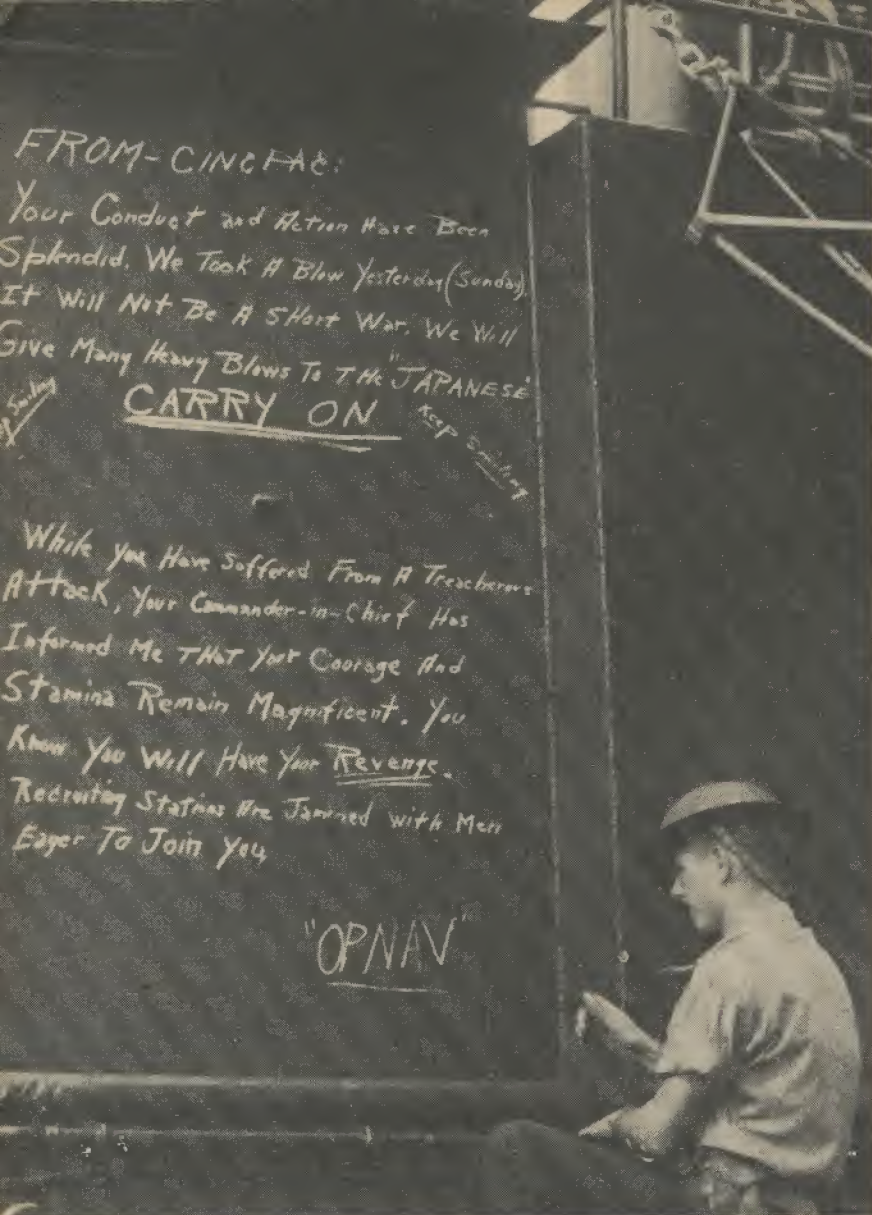 FROM- CINCPAC:
Your Conduct and Action Have Been
Splendid. We Took A Blow Yesterday (Sunday).
It Will Not Be A SHort War. We Will
Give Many Heavy Blows To THe "JAPANESE"
CARRY ON
Smiling
Keep Smiling
While you Have Suffered From A Treacherous
Attack, Your Commander-in-Chief Has
Informed Me THat Your Courage And
Stamina Remain Magnificent. You
Know You Will Have Your Revenge.
Recruiting Stations Are Jammed with Men
Eager To Join You
"OPNAV"